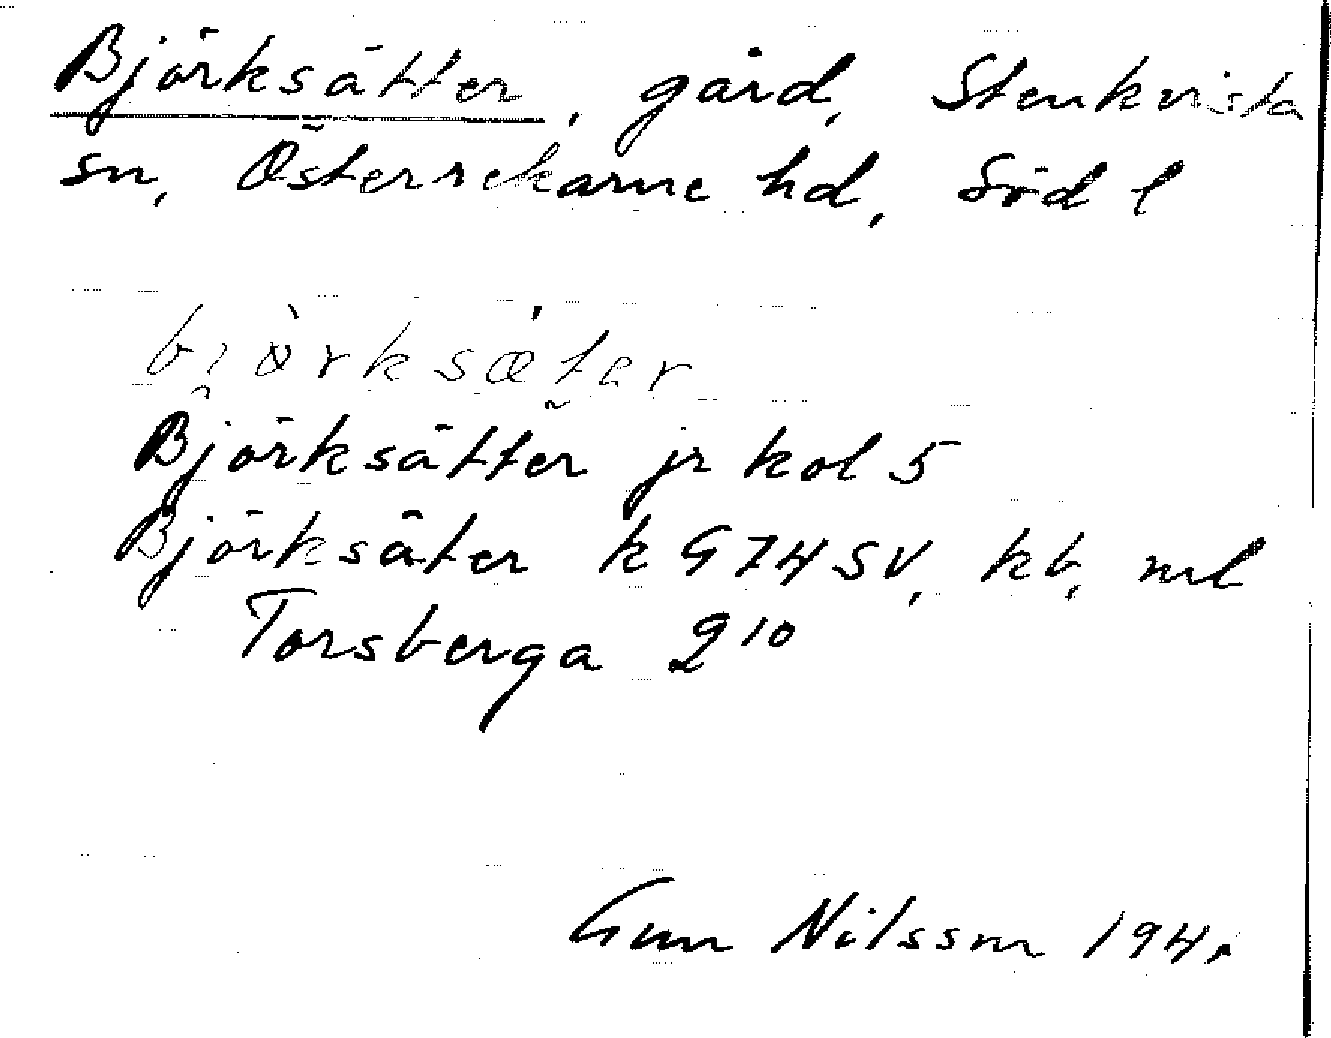 Björksätter, gård, Stenkvista
sn, Österrekarne hd, Söd l
bi̯ö̀rksæ̍tər
Björksätter jr kol 5
Björksäter k G74SV, kb, ml
Torsberga 2¹⁰
Gun Nilsson